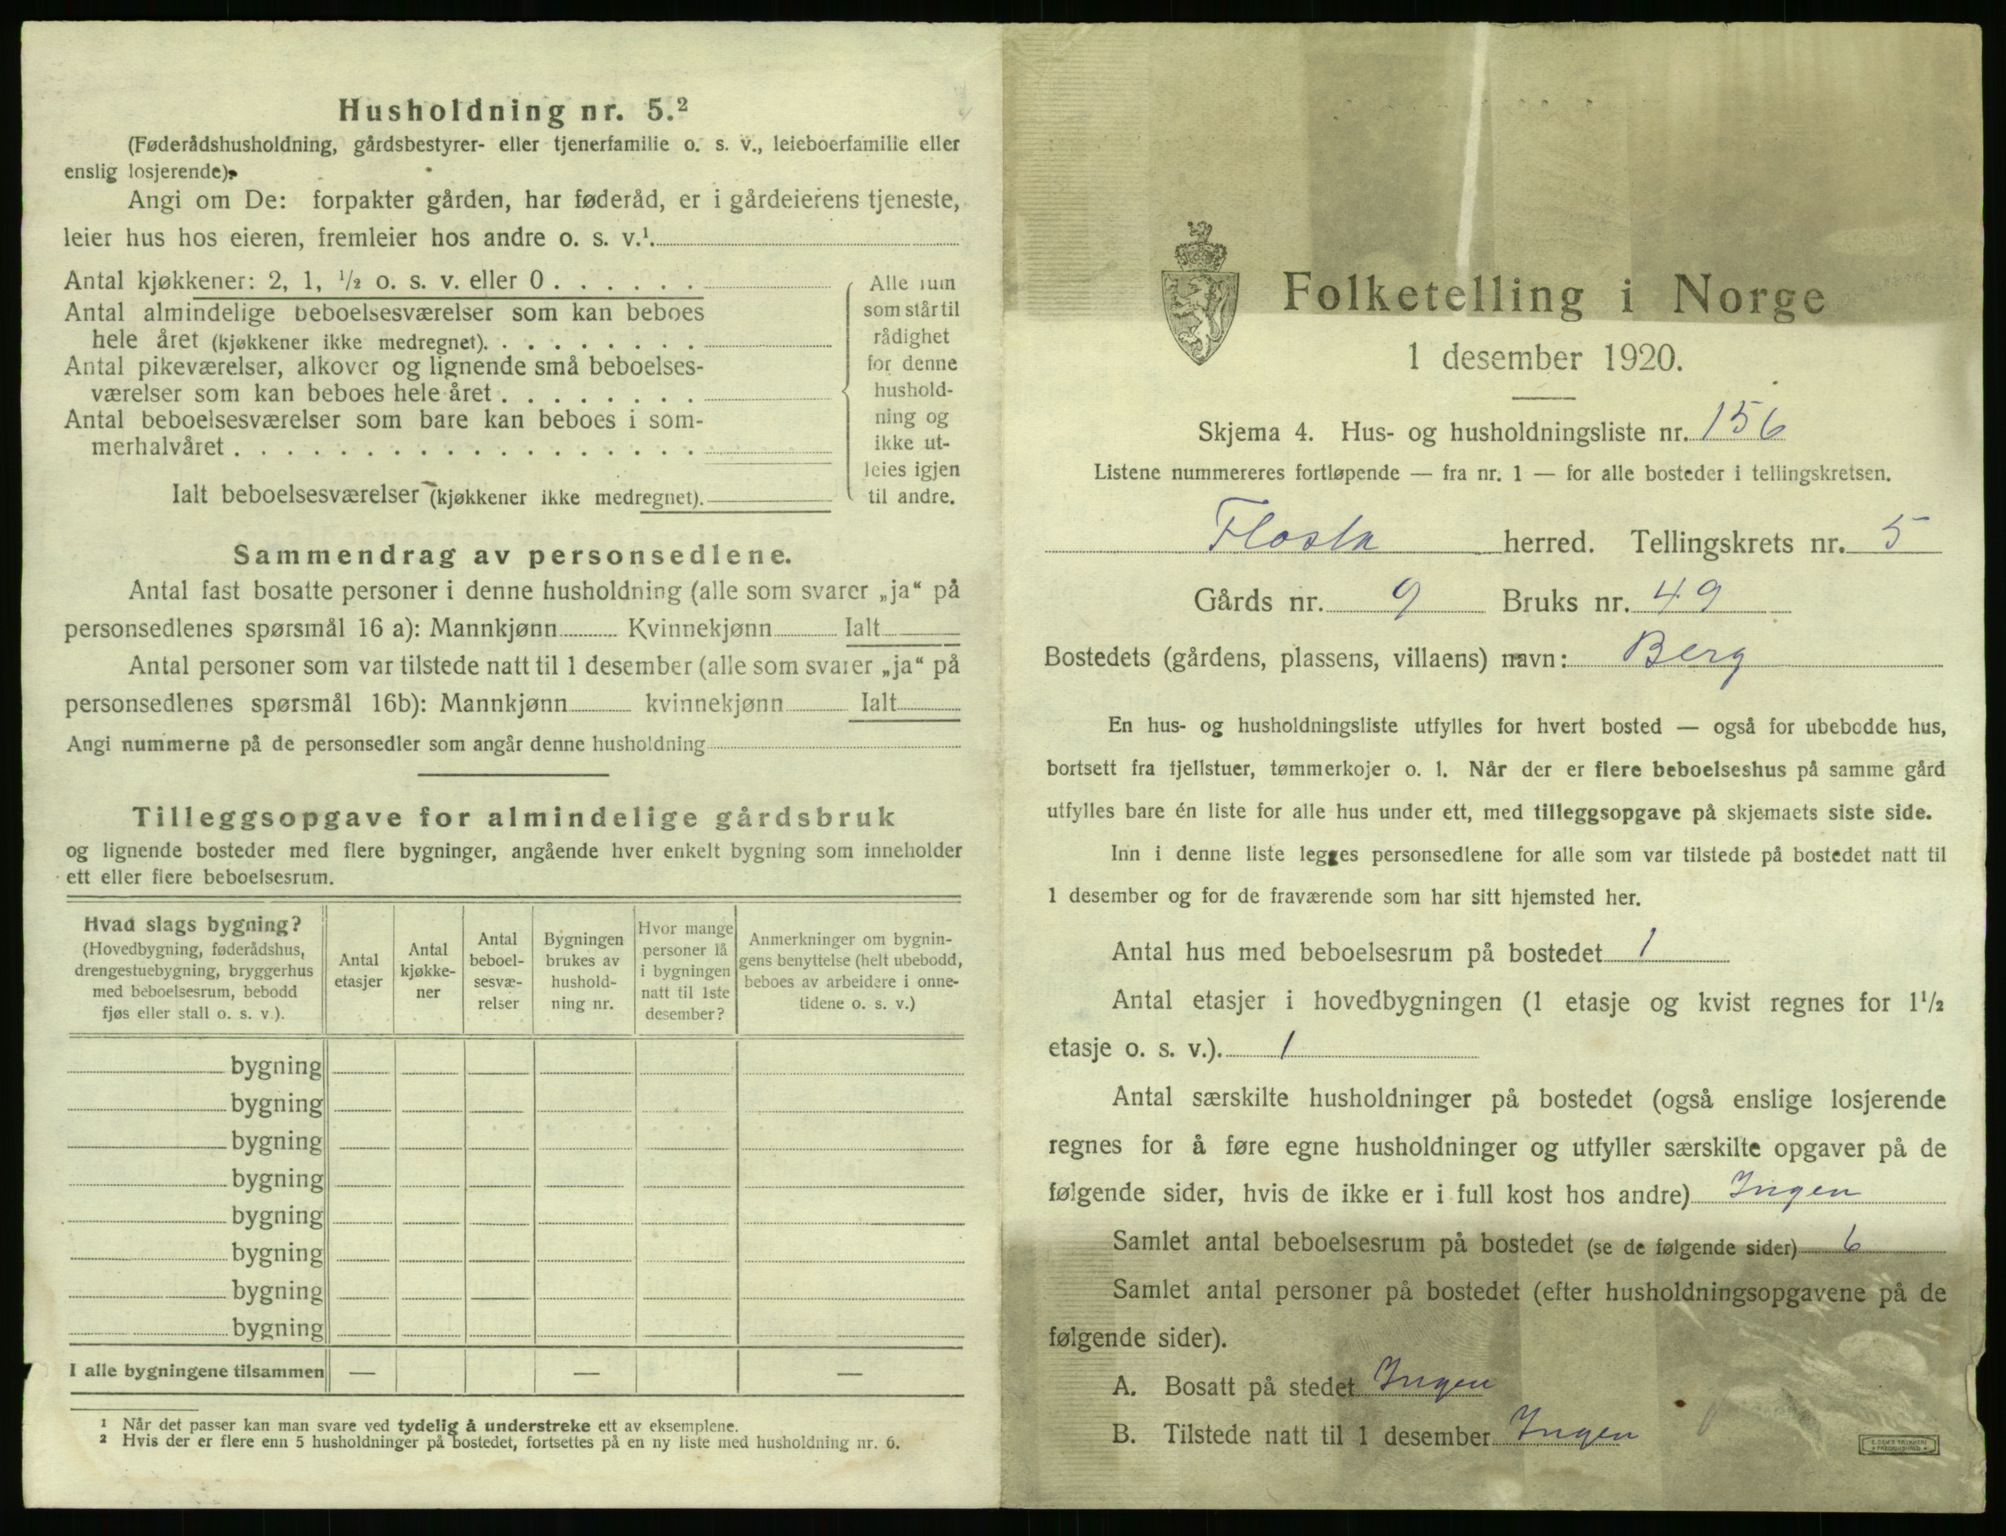 Husholdning nr. 5.²
(Føderådshusholdning, gårdsbestyrer- eller tjenerfamilie o. s. v., leieboerfamilie eller
enslig losjerende).
Angi om De: forpakter gården, har føderåd, er i gårdeierens tjeneste,
leier hus hos eieren, fremleier hos andre o. s. v.¹
Antal kjøkkener: 2, 1, ½ o. s. v. eller 0 . . . . . .
Antal almindelige beboelsesværelser som kan beboes
hele året (kjøkkener ikke medregnet). . . . . . . . .
Antal pikeværelser, alkover og lignende små beboelses-
værelser som kan beboes hele året . . . . . . . .
Antal beboelsesværelser som bare kan beboes i som-
merhalvåret . . . . . . . . . . . . . . . . . .
Ialt beboelsesværelser (kjøkkener ikke medregnet).
Alle rum
som står til
rådighet
for denne
hushold-
ning og
ikke ut-
leies igjen
til andre.
Sammendrag av personsedlene.
Antal fast bosatte personer i denne husholdning (alle som svarer „ja“ på
personsedlenes spørsmål 16 a): Mannkjønn Kvinnekjønn Ialt
Antal personer som var tilstede natt til 1 desember (alle som svarer „ja“ på
personsedlenes spørsmål 16b): Mannkjønn kvinnekjønn Ialt
Angi nummerne på de personsedler som angår denne husholdning
Tilleggsopgave for almindelige gårdsbruk
og lignende bosteder med flere bygninger, angående hver enkelt bygning som inneholder
ett eller flere beboelsesrum.
Hvad slags bygning?
(Hovedbygning, føderådshus,
drengestuebygning, bryggerhus
med beboelsesrum, bebodd
fjøs eller stall o. s. v.).
Antal
etasjer
Antal
kjøkke-
ner
Antal
beboel-
sesvæ-
relser
Bygningen
brukes av
hushold-
ning nr.
Hvor mange
personer lå
i bygningen
natt til 1ste
desember?
Anmerkninger om bygnin-
gens benyttelse (helt ubebodd,
beboes av arbeidere i onne-
tidene o. s. v.)
bygning
bygning
bygning
bygning
bygning
bygning
bygning
bygning
I alle bygningene tilsammen — — —
¹ Når det passer kan man svare ved tydelig å understreke ett av eksemplene.
² Hvis der er flere enn 5 husholdninger på bostedet, fortsettes på en ny liste med husholdning nr. 6.
Folketelling i Norge
1 desember 1920.
Skjema 4. Hus- og husholdningsliste nr. 156
Listene nummereres fortløpende — fra nr. 1 — for alle bosteder i tellingskretsen.
Flosta herred. Tellingskrets nr. 5
Gårds nr. 9 Bruks nr. 49
Bostedets (gårdens, plassens, villaens) navn: Berg
En hus- og husholdningsliste utfylles for hvert bosted — også for ubebodde hus,
bortsett fra fjellstuer, tømmerkojer o. l. Når der er flere beboelseshus på samme gård
utfylles bare én liste for alle hus under ett, med tilleggsopgave på skjemaets siste side.
Inn i denne liste legges personsedlene for alle som var tilstede på bostedet natt til
1 desember og for de fraværende som har sitt hjemsted her.
Antal hus med beboelsesrum på bostedet 1
Antal etasjer i hovedbygningen (1 etasje og kvist regnes for 1½
etasje o. s. v.). 1
Antal særskilte husholdninger på bostedet (også enslige losjerende
regnes for å føre egne husholdninger og utfyller særskilte opgaver på de
følgende sider, hvis de ikke er i full kost hos andre) Ingen
Samlet antal beboelsesrum på bostedet (se de følgende sider) 6
Samlet antal personer på bostedet (efter husholdningsopgavene på de
følgende sider).
A. Bosatt på stedet Ingen
B. Tilstede natt til 1 desember Ingen